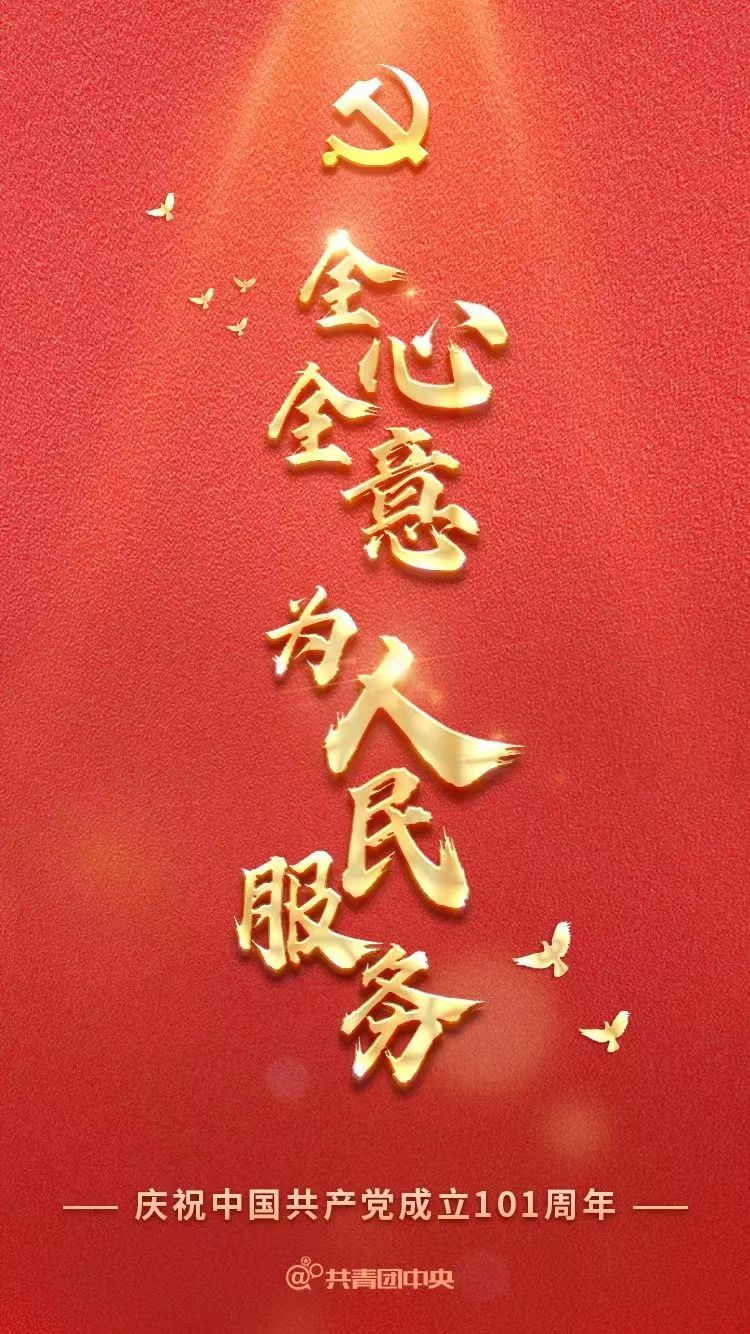 全心全意
为人民服务
庆祝中国共产党成立101周年
@共青团中央